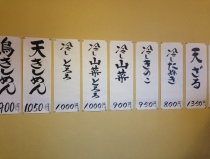 天ざる
1350円
冷したぬき
800円
冷しきのこ
950円
冷し山菜
900円
冷し山菜とろろ
1000円
冷しとろろ
1000円
天きしめん
1050円
鳥きしめん
900円